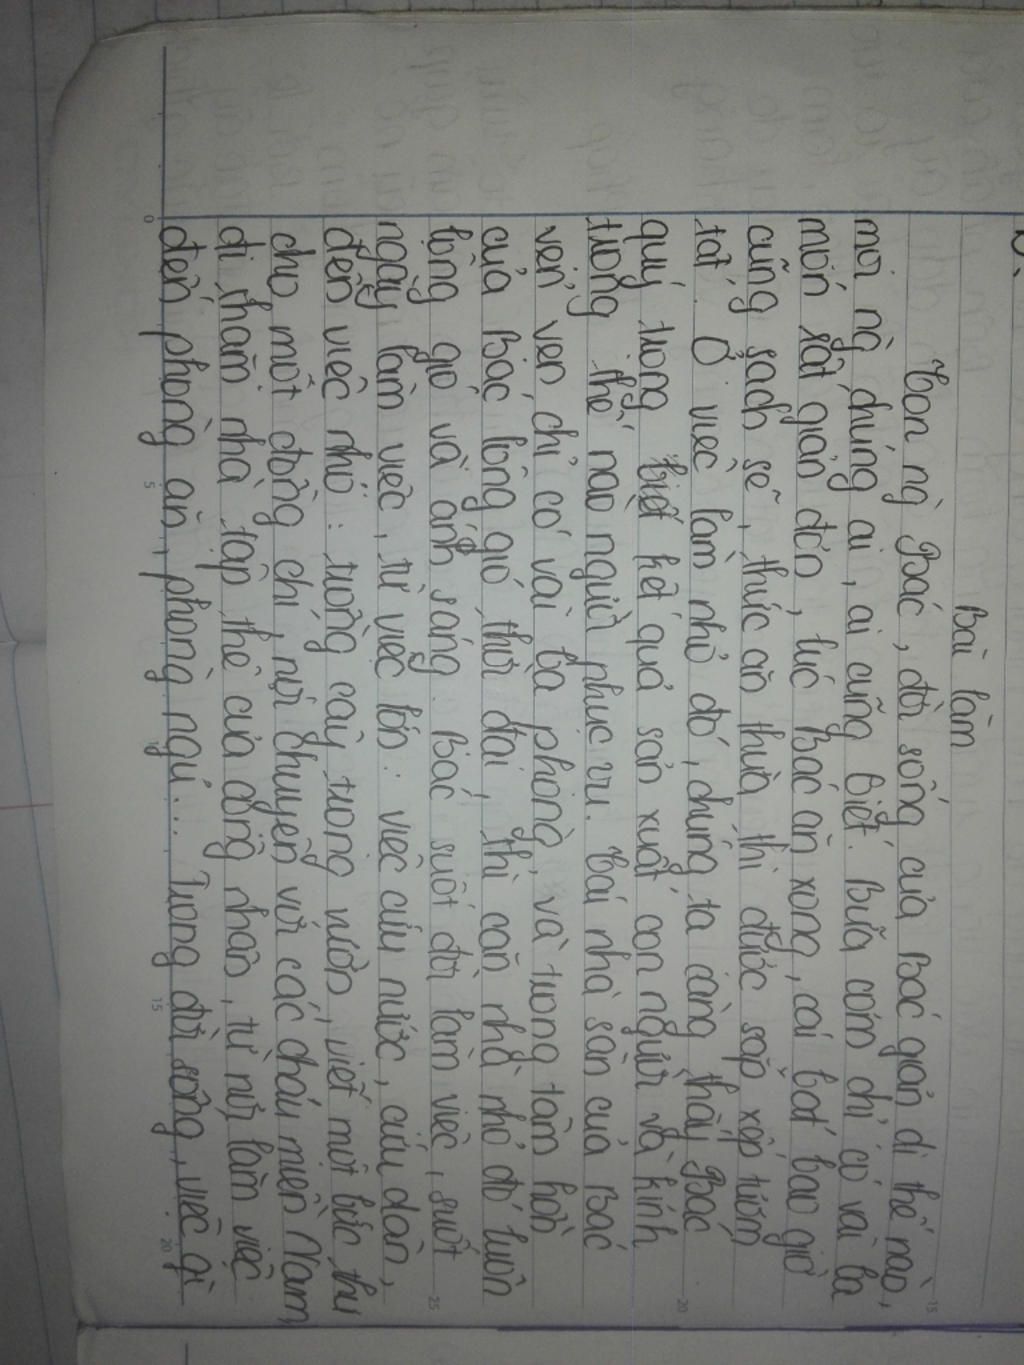 Bài làm
Con ng Bác, đời sống của Bác giản dị thế nào,
mọi ng chúng ai, ai cũng biết. Bữa cơm chỉ có vài ba
món rất giản đơn, lúc Bác ăn xong, cái bát bao giờ
cũng sạch sẽ, thức ăn thừa thì được sắp xếp tươm
tất. Ở việc làm nhỏ đó, chúng ta càng thấy Bác
quý trọng biết kết quả sản xuất con người và kính
trọng thế nào người phục vụ. Cái nhà sàn của Bác
vẻn vẹn chỉ có vài ba phòng, và trong tâm hồn
của Bác lông gió thời đại, thì căn nhà nhỏ đó luôn
lông gió và ánh sáng. Bác suốt đời làm việc, suốt
ngày làm việc, từ việc lớn: việc cứu nước, cứu dân,
đến việc nhỏ: trồng cây trong vườn, viết một bức thư
cho một đồng chí, nói chuyện với các cháu miền Nam,
đi thăm nhà tập thể của công nhân, từ nơi làm việc
đến phòng ăn, phòng ngủ... Trong đời sống, việc gì
0
5
10
15
20
25
20
15